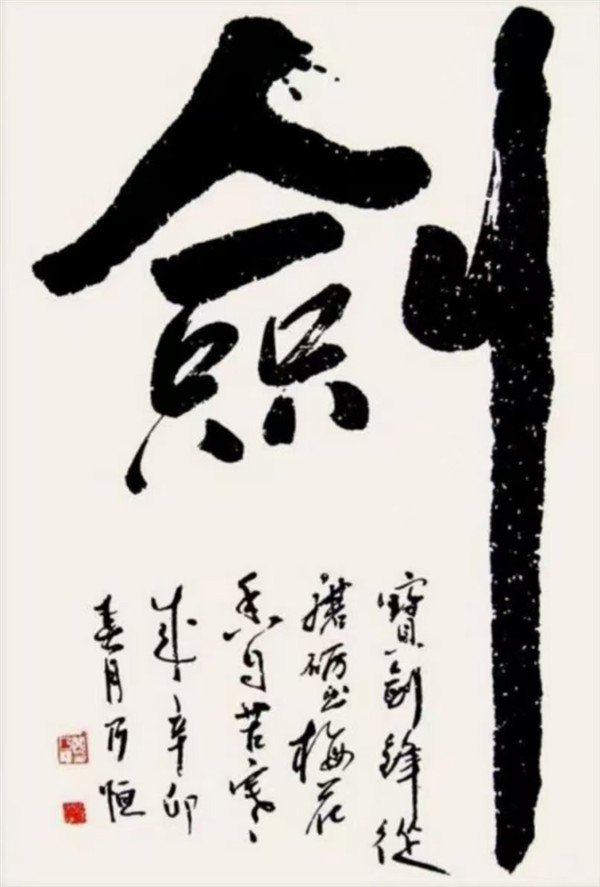 劍
寶劍鋒從
磨礪出梅花
香自苦寒
來辛卯
春月恒